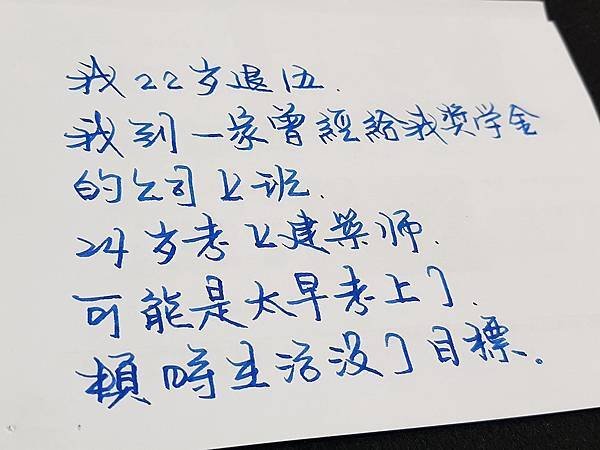 我22岁退伍.
我到一家曾經給我奖学金
的公司上班.
24岁考上建築师.
可能是太早考上了.
頓時生活没了目標.